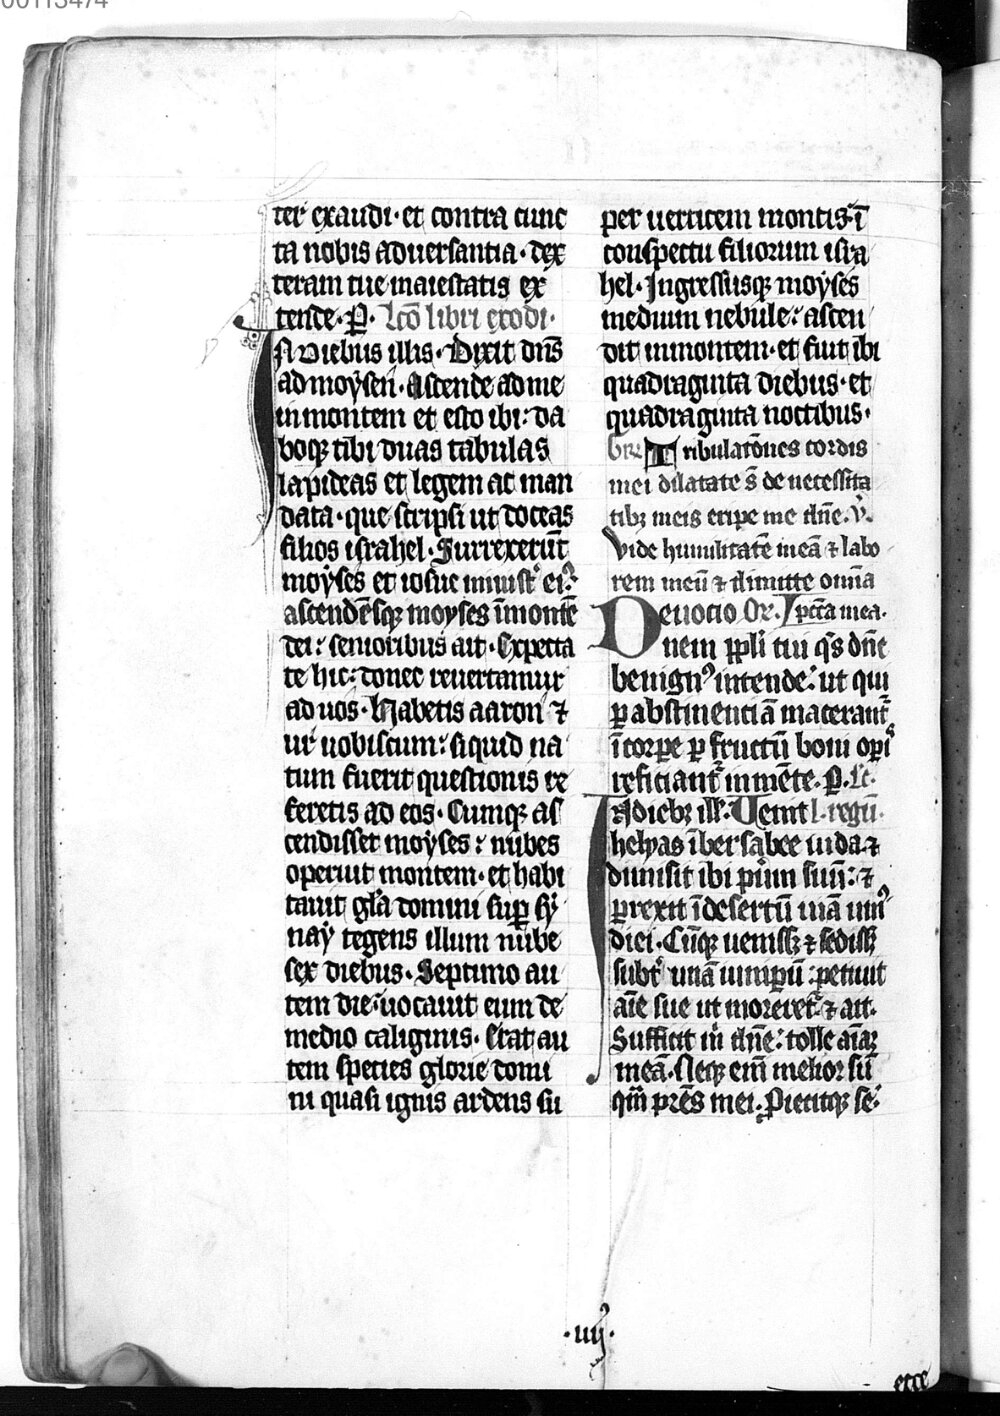 00113474
ter exaudi · et contra cunc
ta nobis aduersantia · dex
teram tue maiestatis ex
tende · P̱ · Lc̄o libri exodi ·
IN diebus illis · Dixit dn̄s
ad moẏsen · Ascende ad me
in montem et esto ibi : da
boqꝫ tibi duas tabulas
lapideas et legem ac man
data · que scripsi ut doceas
filios israhel · Surrexerūt
moẏses et iosue minist᷑ ei⁹ :
ascendēsqꝫ moyses ī montē
dei : senioribus ait · Expecta
te hic : donec reuertamur
ad uos · Habetis aaron ⁊
ur uobiscum : siquid na
tum fuerit questionis re
feretis ad eos · Cumqꝫ as
cendisset moẏses : nubes
operuit montem · et habi
tauit gl̄a domini suꝑ sẏ
naẏ tegens illum nube
sex diebus · Septimo au
tem die : uocauit eum de
medio caliginis · Erat au
tem species glorie domi
ni quasi ignis ardens su
per uerticem montis · ī
conspectu filiorum isra
hel · Ingressusqꝫ moẏses
medium nebule : ascen
dit in montem · et fuit ibi
quadraginta diebus · et
quadraginta noctibus ·
Tribulatōnes cordis
mei dilatate s̄ de necessita
tibꝫ meis eripe me dn̄e · V̄ ·
Vide humilitatē meā ⁊ labo
rem meū ⁊ dimitte omīa
Deuotio Or · pctā mea ·
nem ppl̄i tui qs̄ dn̄e
benign⁹ intende : ut qui
ꝑ abstinentiā macerant᷑
ī corpe ꝑ fructū boni oꝑis
reficiant᷑ in mēte · P̱ · Lc̄ ·
IN diebꝫ ill̄ · Uenit l · regū ·
helyas ī bersabee iuda · ⁊
dimisit ibi puͥum suū : ⁊
ꝑrexit ī desertū uiā uni⁹
diei · Cūqꝫ uenissꝫ ⁊ sedissꝫ
subt᷑ unā iuniꝑū : petiuit
aīe sue ut moreret᷑ · ⁊ ait ·
Sufficit m̄ dn̄e : tolle aīaꝫ
meā · Neqꝫ em̄ melior sū
qm̄ patr̄es mei · Proiecitqꝫ se ·
· iiij ·
ecce